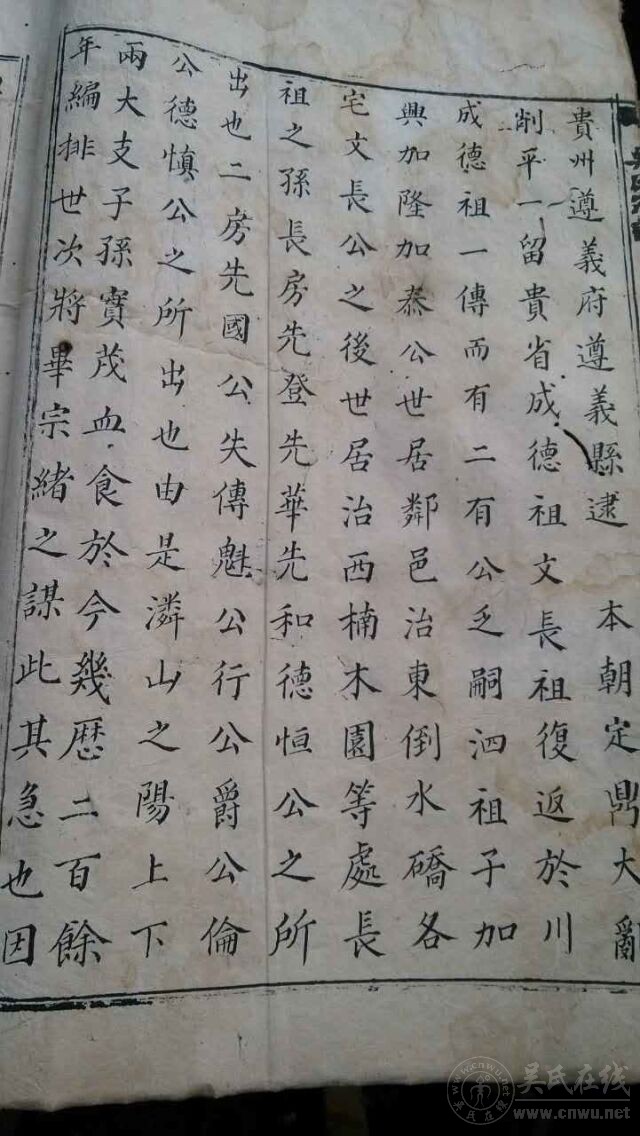 貴州遵義府遵義縣逮 本朝定鼎大亂
削平一留貴省成德祖文長祖復返於川
成德祖一傳而有二有公乏嗣泗祖子加
興加隆加泰公世居鄰邑治東倒水礄各
宅文長公之後世居治西楠木園等處長
祖之孫長房先登先華先和德恒公之所
出也二房先國公失傳魁公行公爵公倫
公德慎公之所出也由是潾山之陽上下
兩大支子孫實茂血食於今幾歷二百餘
年編排世次將畢宗緒之謀此其急也因
吴氏在线
www.cnwu.net